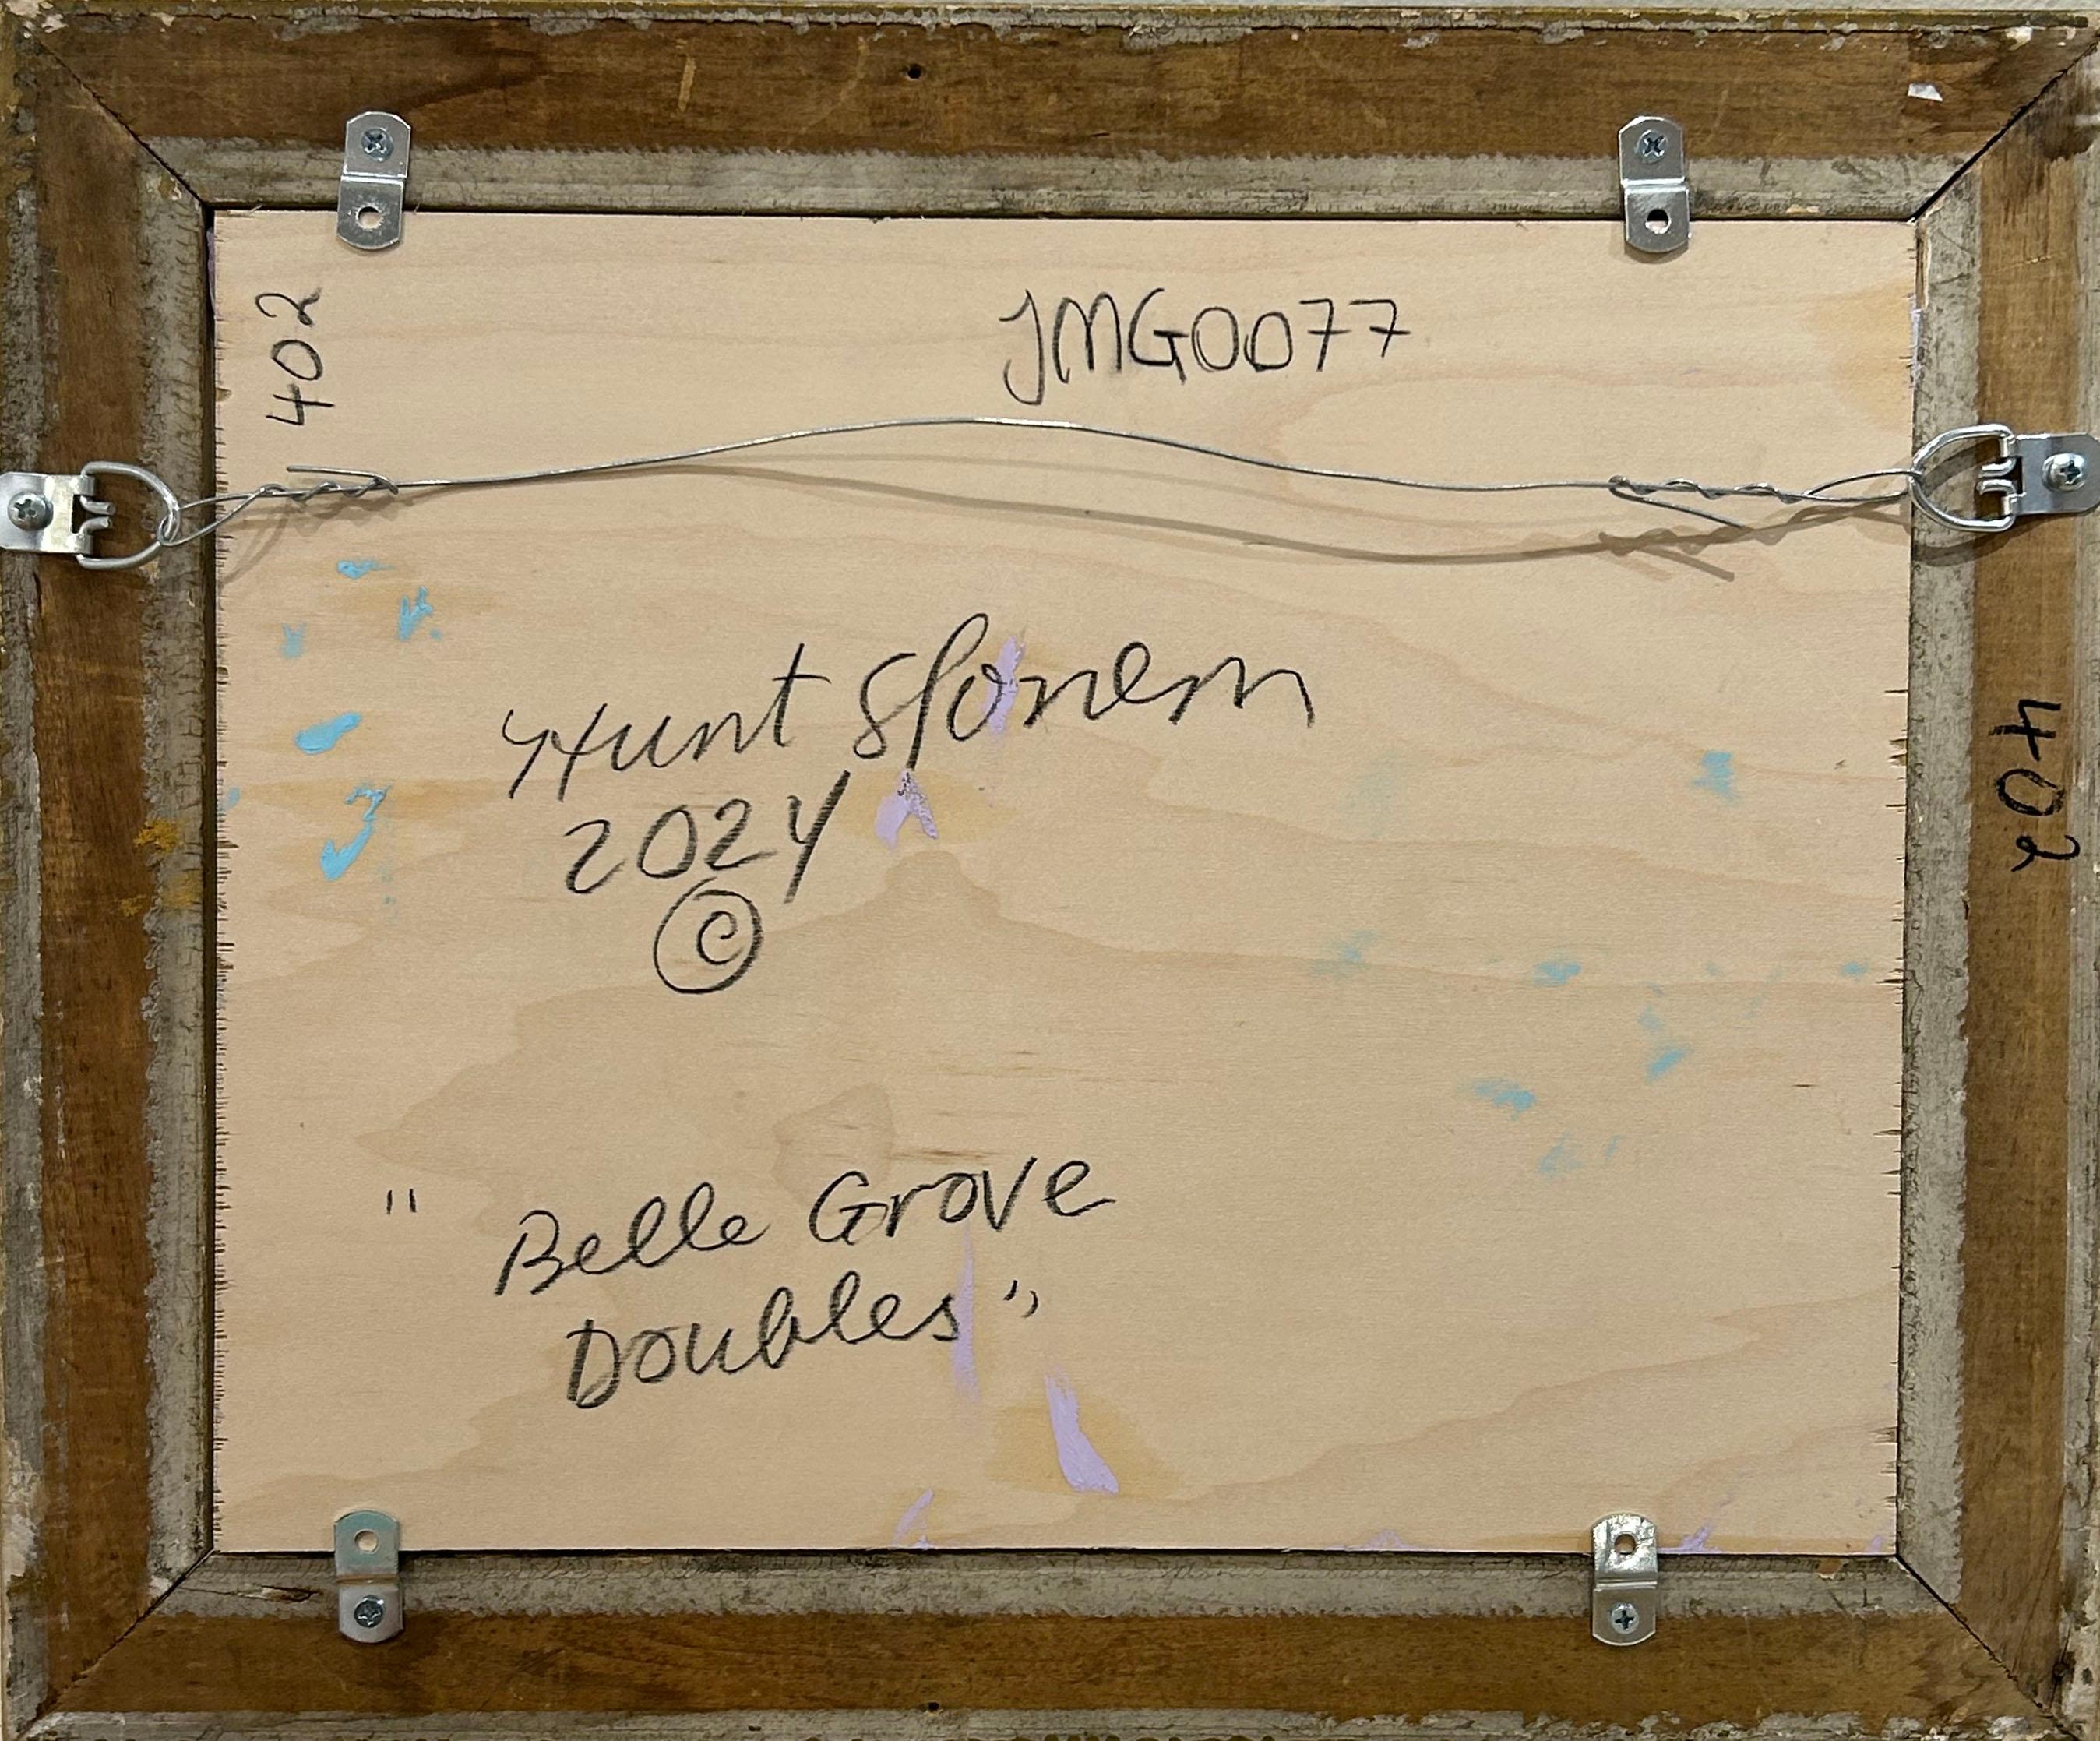 402
JMG0077
Hunt Slonem
2024
©
402
" Belle Grove
Doubles"